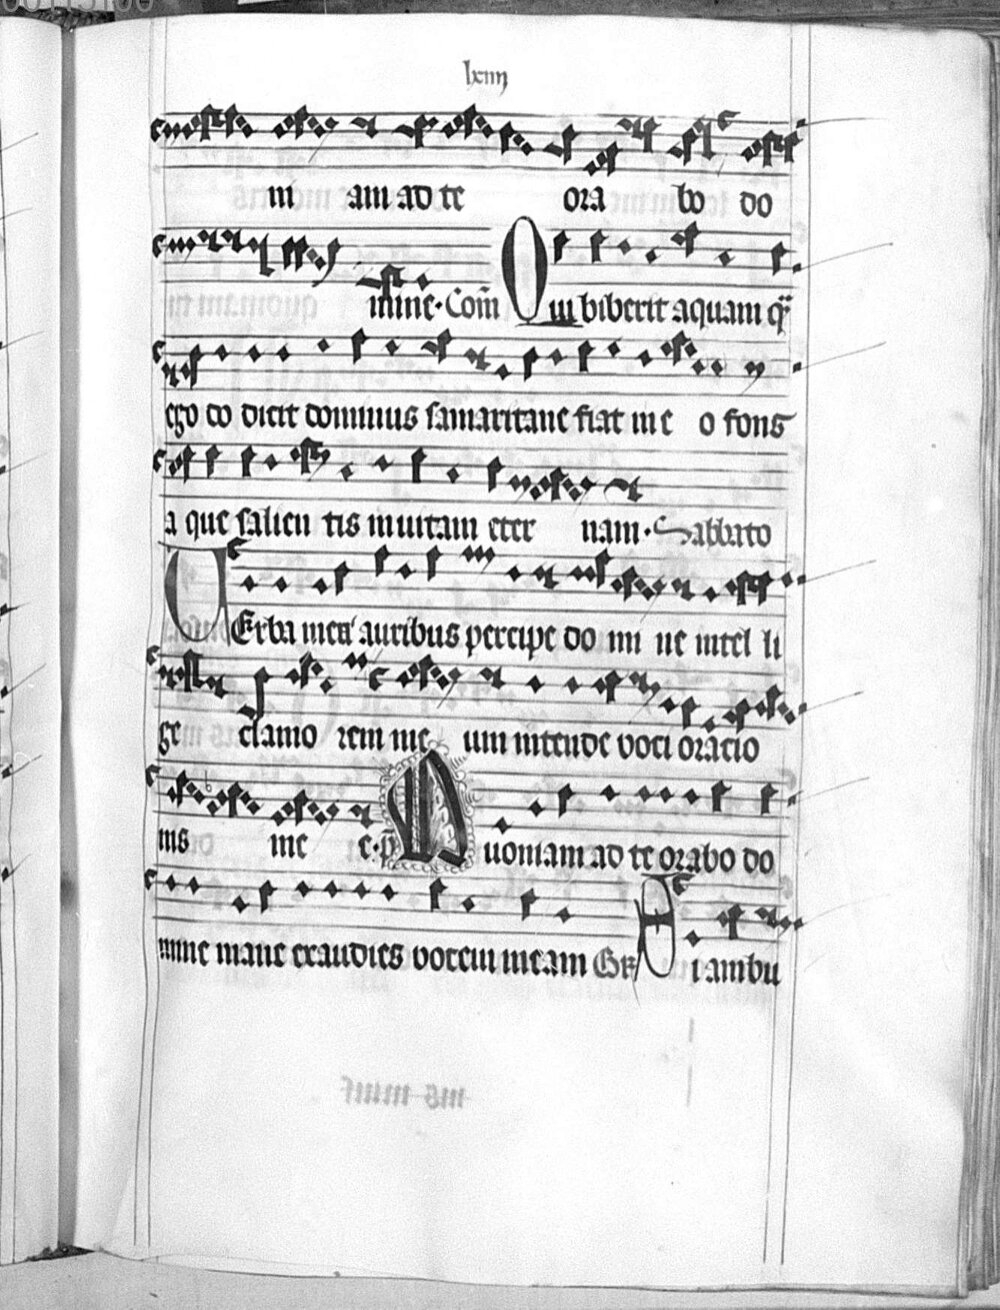 lxiiij
ni am ad te ora bo do
mine. Com Qui biberit aquam q̃
ego do dicit dominus samaritane fiat in e o fons
a que salien tis in uitam eter nam. Sabbato
VErba mea auribus percipe do mi ne intel li
ge clamo rem me um intende voci oracio
nis me e. p̃ Quoniam ad te orabo do
mine mane exaudies vocem meam Gr̃ Si ambu